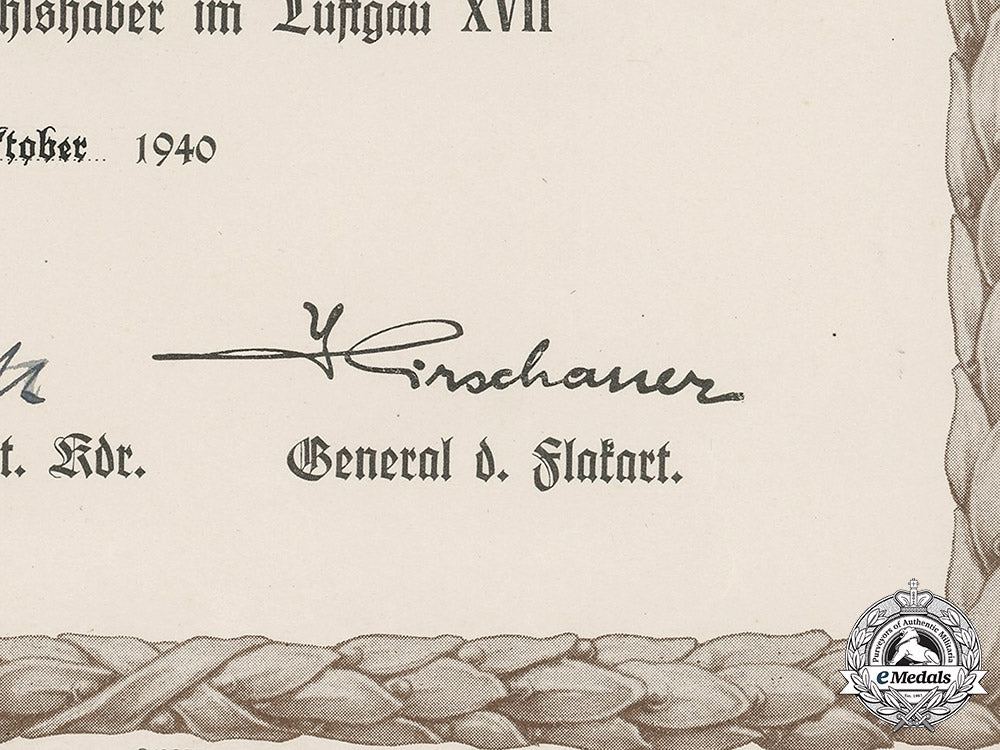 hlshaber im Luftgau XVII
tober 1940
Hirschauer
t. Kdr.
General d. Flakart.
Purveyors of Authentic Militaria
eMedals